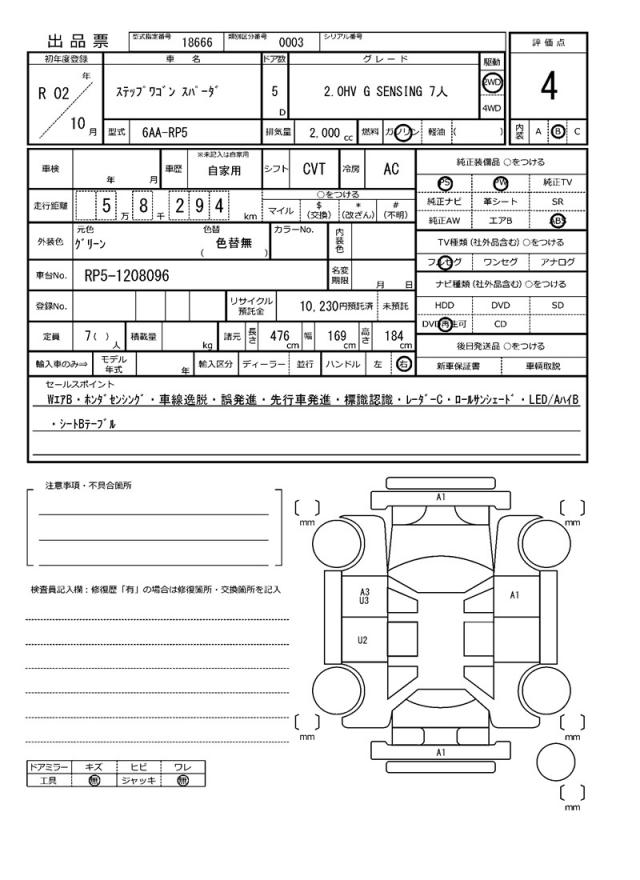 出品票 型式指定番号 18666 類別区分番号 0003 シリアル番号
評価点
4
初年度登録 車名 ドア数 グレード 駆動
R 02 年 10 月
ステップワゴン スパーダ 5 D 2.0HV G SENSING 7人 2WD
4WD
型式 6AA-RP5 排気量 2,000 cc 燃料 ガソリン 軽油 ( ) 内装 A B C
車検 年 月 車歴 ※未記入は自家用 自家用 シフト CVT 冷房 AC
純正装備品 ○をつける
PS PW 純正TV
純正ナビ 革シート SR
純正AW エアB ABS
走行距離 5 万 8 千 2 9 4 km
○をつける
マイル $ (交換) * (改ざん) # (不明)
外装色 元色 グリーン 色替 色替無 ( ) カラーNo. 内装色
TV種類 (社外品含む) ○をつける
フルセグ ワンセグ アナログ
車台No. RP5-1208096 名変期限 月 日
ナビ種類 (社外品含む) ○をつける
HDD DVD SD
DVD再生可 CD
登録No. リサイクル預託金 10,230円預託済 未預託
定員 7( ) 人 積載量 kg 諸元 長さ 476 cm 幅 169 cm 高さ 184 cm
後日発送品 ○をつける
新車保証書 車輌取説
輸入車のみ⇒ モデル年式 年 輸入区分 ディーラー 並行 ハンドル 左 右
セールスポイント
WエアB・ホンダセンシング・車線逸脱・誤発進・先行車発進・標識認識・レーダーC・ロールサンシェード・LED/AハイB
・シートBテーブル
注意事項・不具合箇所
検査員記入欄：修復歴「有」の場合は修復箇所・交換箇所を記入
A1
mm
mm
A3
U3
A1
U2
mm
mm
A1
mm
ドアミラー キズ ヒビ ワレ
工具 無 ジャッキ 無